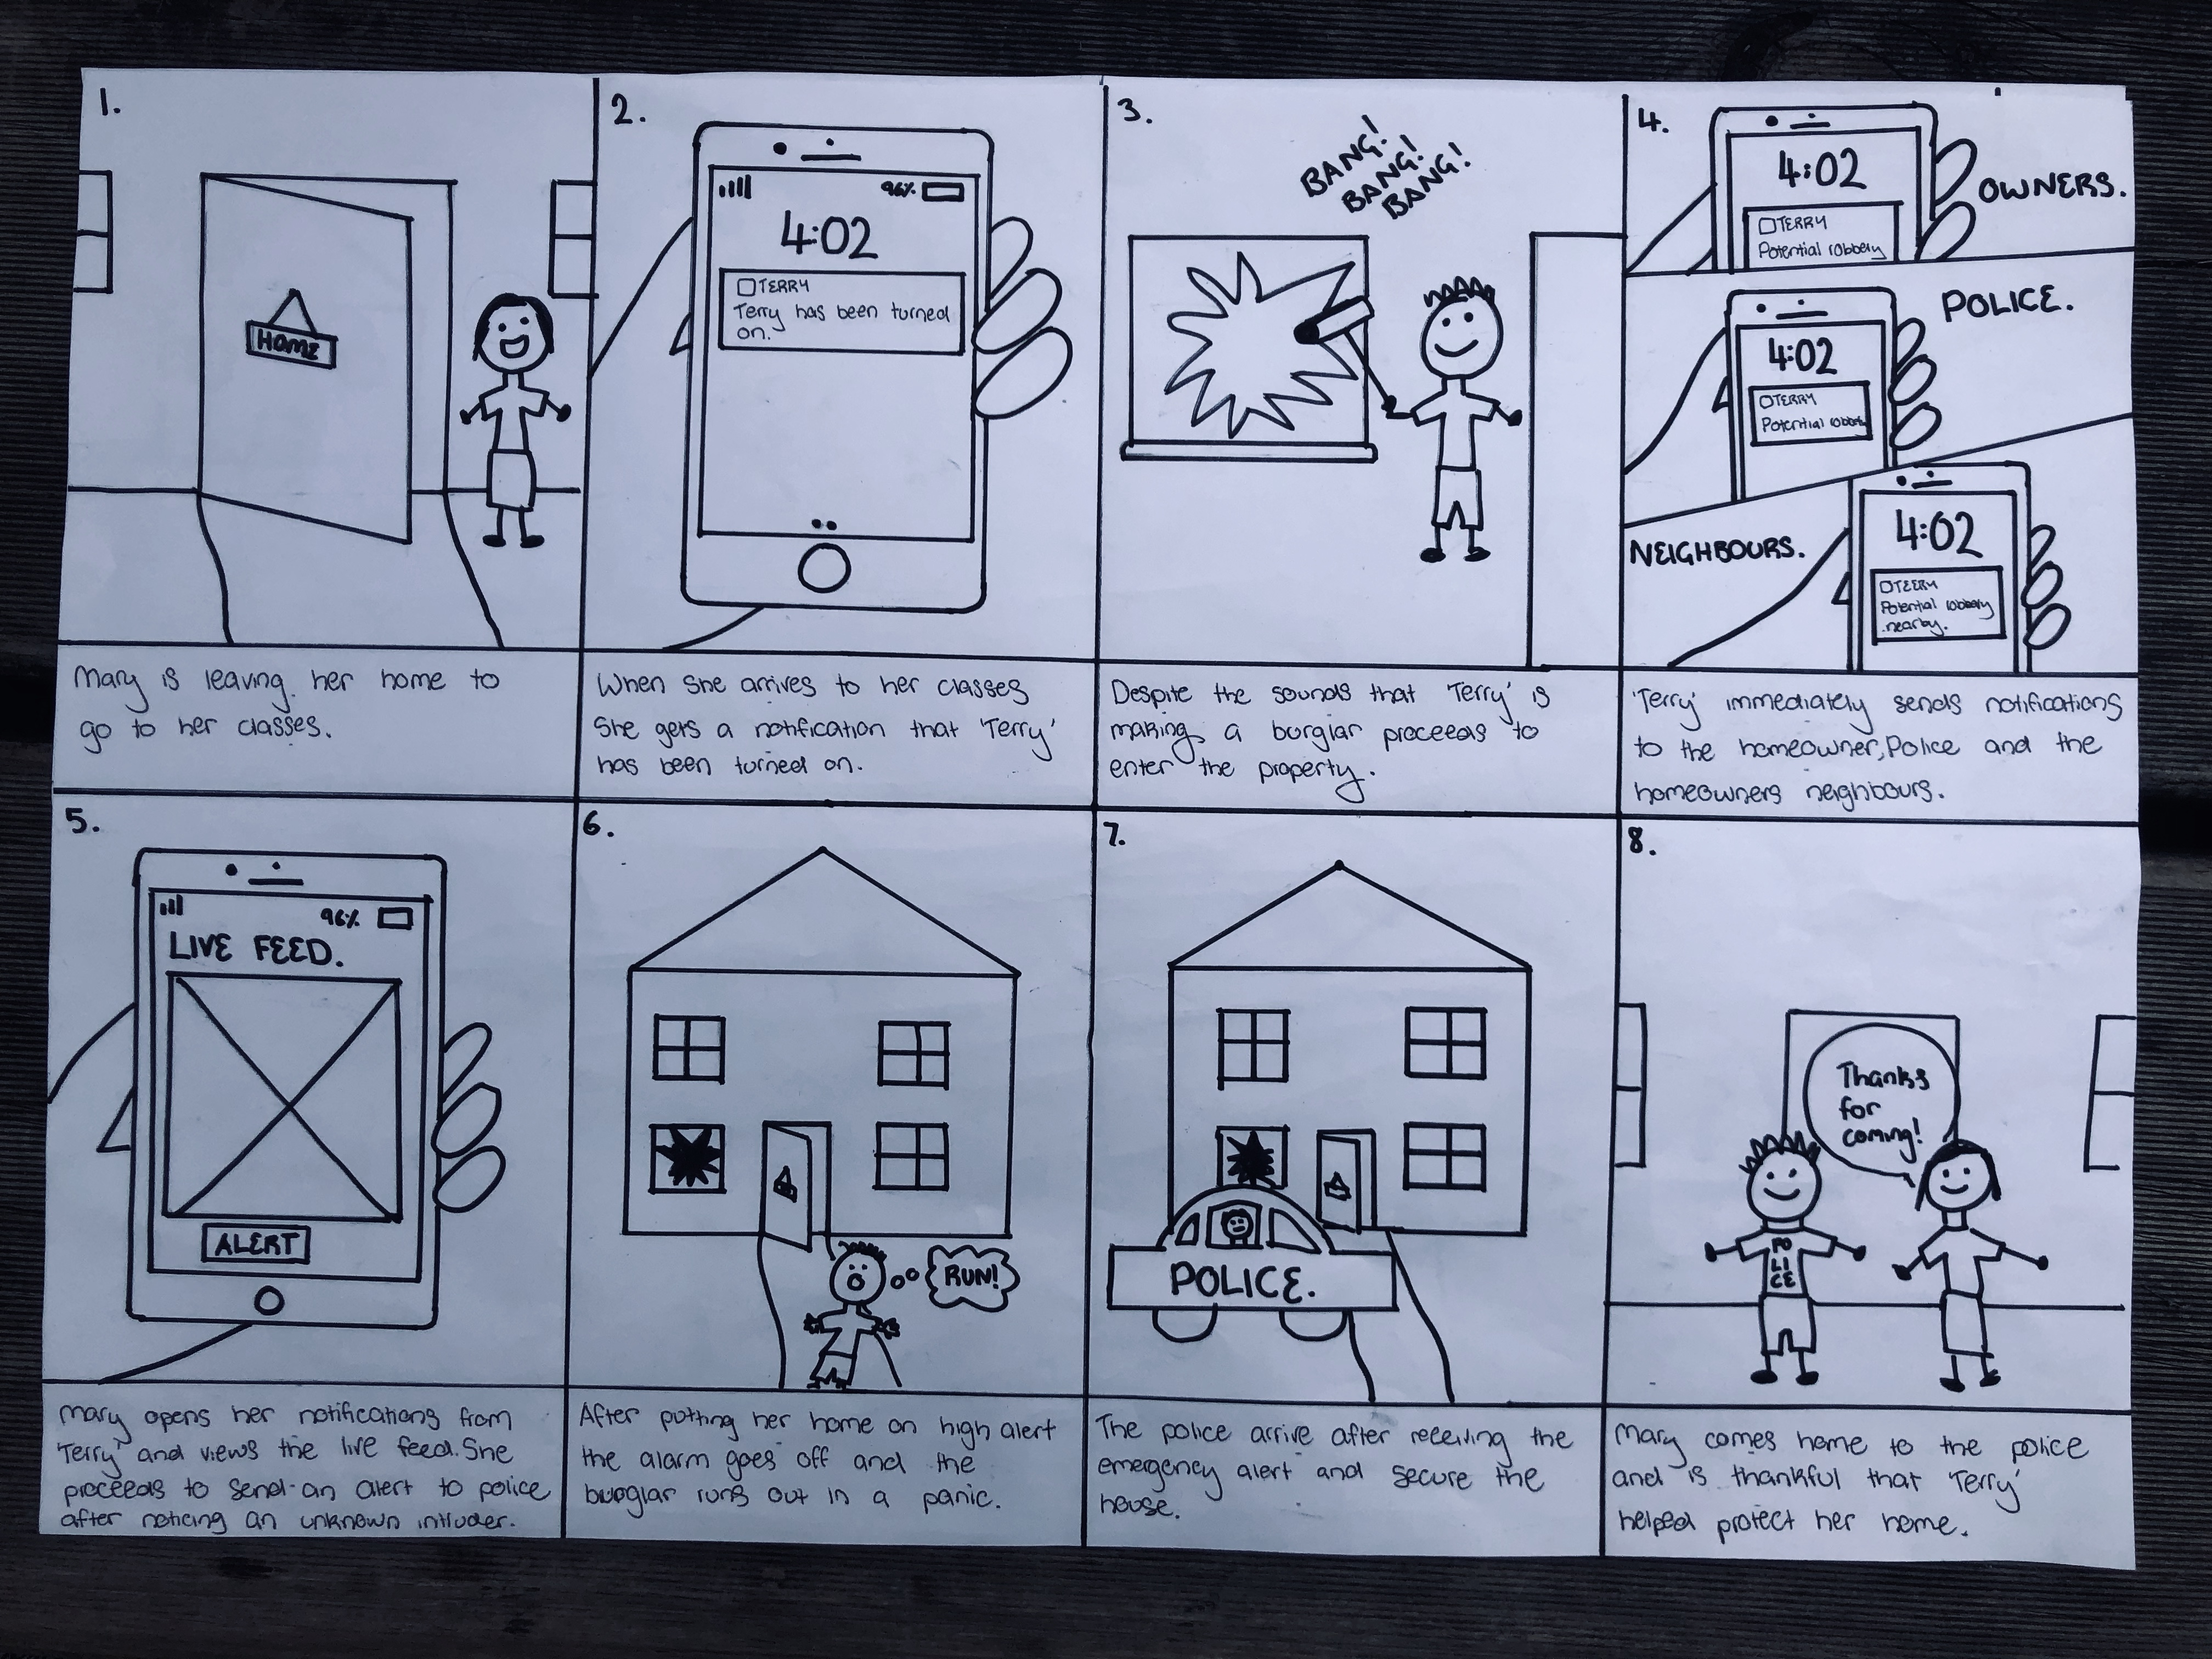 1.
HOME
Mary is leaving her home to
go to her classes.
2.
96%
4:02
TERRY
Terry has been turned
on.
When she arrives to her classes
She gets a notification that 'Terry'
has been turned on.
3.
BANG!
BANG!
BANG!
Despite the sounds that 'Terry' is
making, a burglar proceeds to
enter the property.
4.
4:02
TERRY
Potential robbery
OWNERS.
POLICE.
4:02
TERRY
Potential robbery
NEIGHBOURS.
4:02
TERRY
Potential robbery
nearby.
'Terry' immediately sends notifications
to the homeowner, Police and the
homeowners neighbours.
5.
96%
LIVE FEED.
ALERT
Mary opens her notifications from
'Terry' and views the live feed. She
proceeds to send an alert to police
after noticing an unknown intruder.
6.
RUN!
After putting her home on high alert
the alarm goes off and the
burglar runs out in a panic.
7.
POLICE.
The police arrive after receiving the
emergency alert and secure the
house.
8.
Thanks
for
coming!
PO
LI
CE
Mary comes home to the police
and is thankful that 'Terry'
helped protect her home.